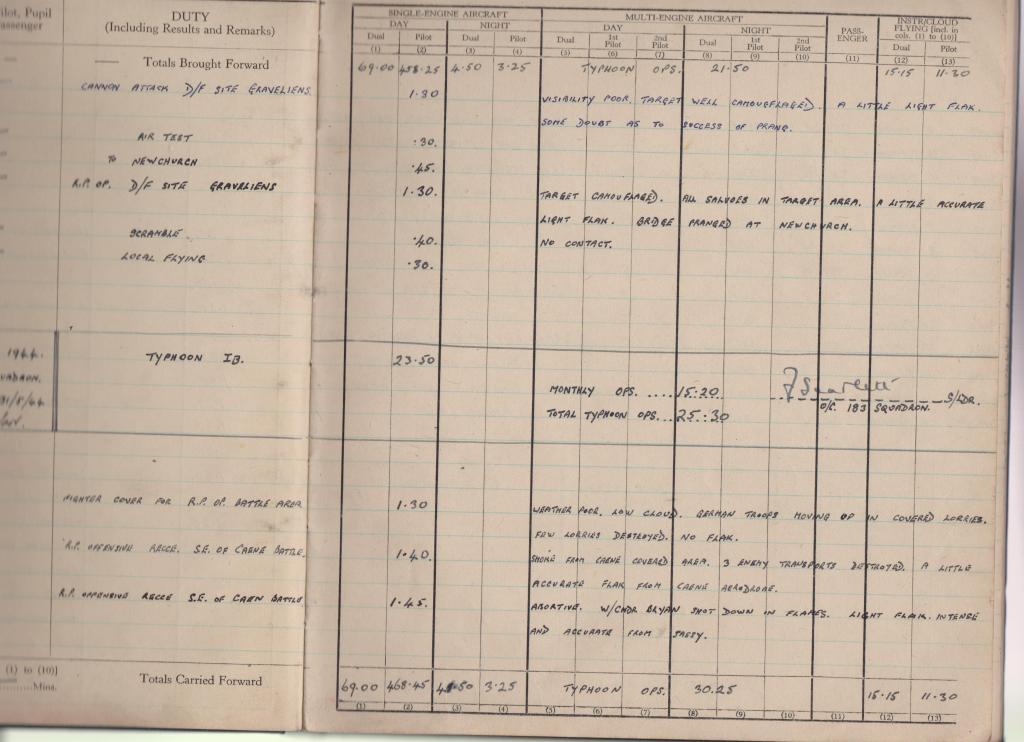 ilot, Pupil
assenger
DUTY
(Including Results and Remarks)
SINGLE-ENGINE AIRCRAFT MULTI-ENGINE AIRCRAFT PASS-ENGER INSTR/CLOUD FLYING [incl. in cols. (1) to (10)]
DAY NIGHT DAY NIGHT
Dual Pilot Dual Pilot Dual 1st Pilot 2nd Pilot Dual 1st Pilot 2nd Pilot Dual Pilot
(1) (2) (3) (4) (5) (6) (7) (8) (9) (10) (11) (12) (13)
— Totals Brought Forward 69.00 458.25 4.50 3.25 TYPHOON OPS. 21.50 15.15 11.30
CANNON ATTACK D/F SITE GRAVELIENS. 1.30 VISIBILITY POOR. TARGET WELL CAMOUGFLAGED. A LITTLE LIGHT FLAK.
SOME DOUBT AS TO SUCCESS OF PRANG.
AIR TEST .30.
TO NEWCHURCH .45.
R.P. OP. D/F SITE GRAVELIENS 1.30. TARGET CAMOUFLAGED. ALL SALVOES IN TARGET AREA. A LITTLE ACCURATE
LIGHT FLAK. BRIDGE PRANGED AT NEWCHURCH.
SCRAMBLE. .40. NO CONTACT.
LOCAL FLYING .30.
1944. TYPHOON IB. 23.50
UADRON.
31/5/44 MONTHLY OPS. .... 15.20. S/LDR.
TOTAL TYPHOON OPS... 25.30 O/C. 183 SQUADRON.
FIGHTER COVER FOR R.P. OP. BATTLE AREA 1.30 WEATHER POOR. LOW CLOUD. GERMAN TROOPS MOVING UP IN COVERED LORRIES.
FEW LORRIES DESTROYED. NO FLAK.
R.P. OFFENSIVE RECCE. S.E. OF CAENE BATTLE. 1.40. SMOKE FROM CAENE COVERED AREA. 3 ENEMY TRANSPORTS DESTROYED. A LITTLE
ACCURATE FLAK FROM CAENE AERODROME.
R.P. OFFENSIVE RECCE S.E. OF CAEN BATTLE 1.45. ABORTIVE. W/CMDR BRYAN SHOT DOWN IN FLAMES. LIGHT FLAK. INTENSE
AND ACCURATE FROM SASSY.
(1) to (10)]
........Mins. Totals Carried Forward 69.00 468.45 4.50 3.25 TYPHOON OPS. 30.25 15.15 11.30
(1) (2) (3) (4) (5) (6) (7) (8) (9) (10) (11) (12) (13)